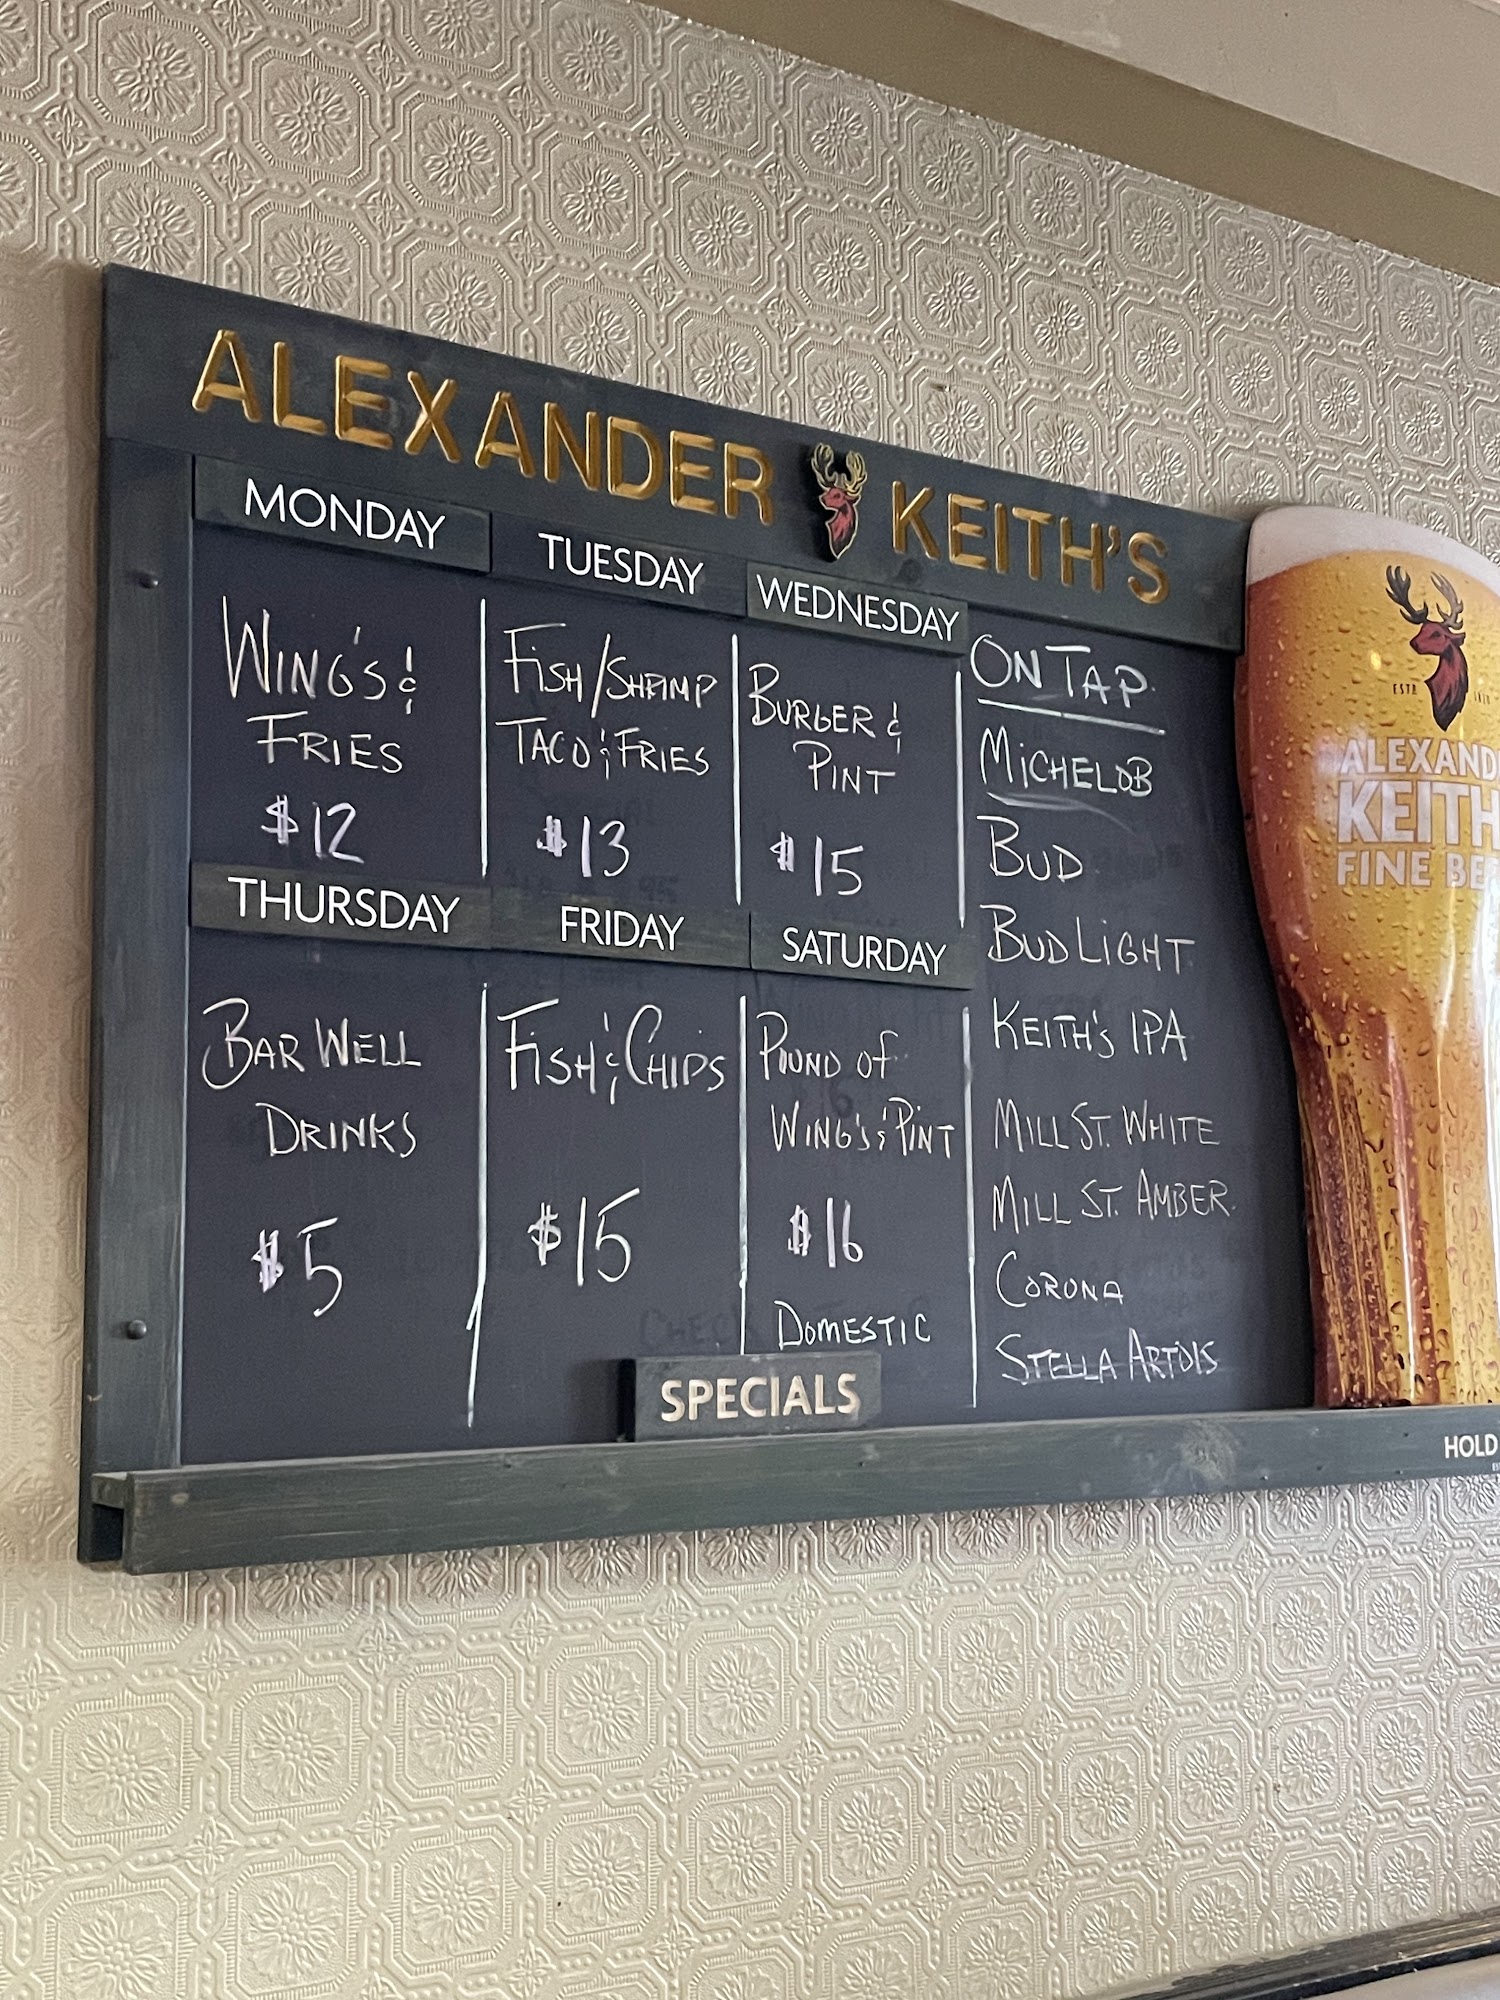 ALEXANDER KEITH'S
MONDAY
WING'S &
FRIES
$12
TUESDAY
FISH/SHRIMP
TACO & FRIES
$13
WEDNESDAY
BURGER &
PINT
$15
THURSDAY
BAR WELL
DRINKS
$5
FRIDAY
FISH & CHIPS
$15
SATURDAY
POUND OF
WING'S & PINT
$16
DOMESTIC
SPECIALS
ON TAP
MICHELOB
BUD
BUD LIGHT
KEITH'S IPA
MILL ST. WHITE
MILL ST. AMBER
CORONA
STELLA ARTOIS
ESTD
ALEXAND
KEITH
FINE BE
HOLD